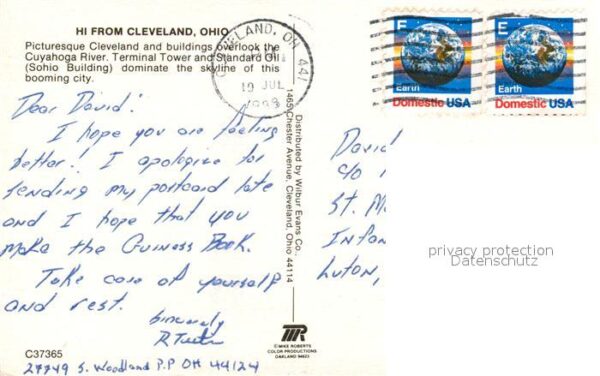 HI FROM CLEVELAND, OHIO
Picturesque Cleveland and buildings overlook the
Cuyahoga River. Terminal Tower and Standard Oil
(Sohio Building) dominate the skyline of this
booming city.
CLEVELAND, OH 441
19 JUL
E
Earth
Domestic USA
E
Earth
Domestic USA
Dear David!
I hope you are feeling
better! I apologize for
sending my postcard late
and I hope that you
make the Guiness Book.
Take care of yourself
and rest.
Sincerely
R
27949 S. Woodland P.P OH 44124
Distributed by Wilbur Evans Co.,
1465 Chester Avenue, Cleveland, Ohio 44114
David
c/o
St. M
Infan
Luton,
privacy protection
Datenschutz
©MIKE ROBERTS
COLOR PRODUCTIONS
OAKLAND 94623
C37365